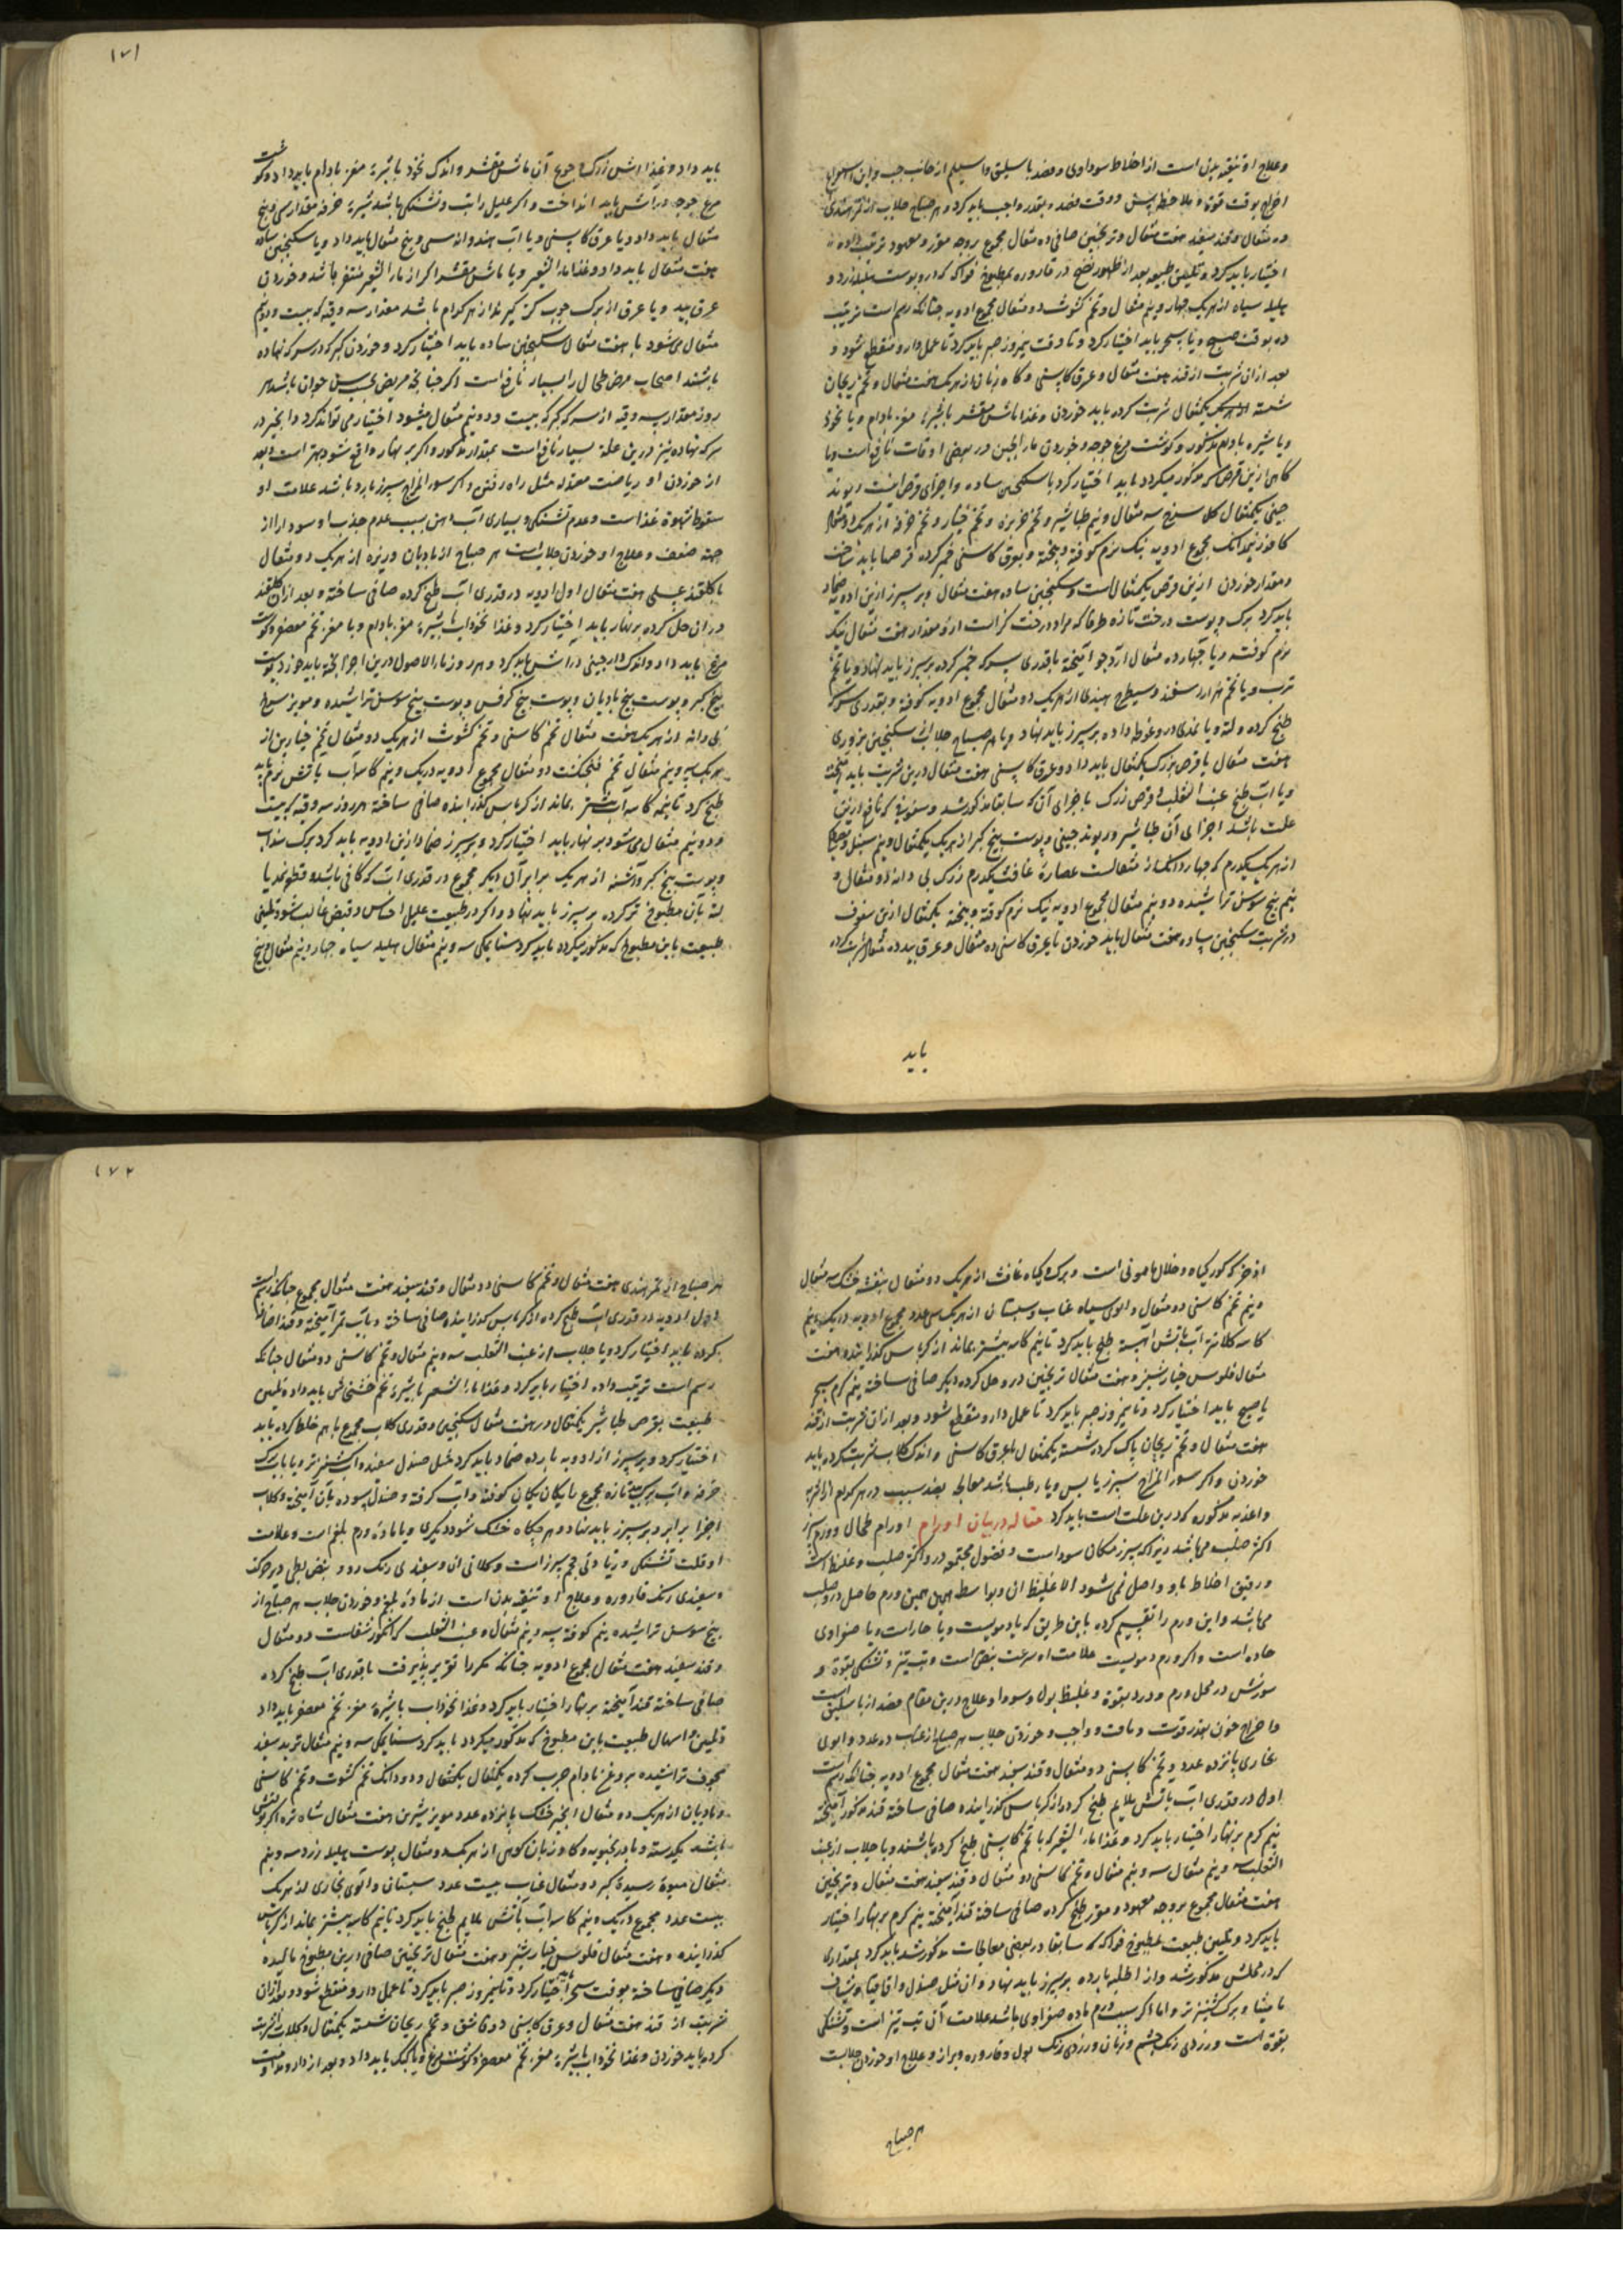 وعلاج او تنقیه بدن است از اخلاط سوداوی و فصد باسلیق و اسیلم از جانب چپ
اخراج بوقت قوة و ملاحظه پیش و وقت فصد و بقدر واجب باید کرد و هر صباح جلاب از تمر هندی
ده مثقال و قند سفید هفت مثقال و ترنجبین صافی ده مثقال مجموع بروجه مقرر و معهود ترتیب داده
اختیار باید کرد و تلیین طبیعه بعد از ظهور نضج در قاروره بمطبوخ فواکه که در و پوست هلیله زرد و
هلیله سیاه از هر یک چهار و نیم مثقال و تخم کشوث دو مثقال مجموع ادویه چنانکه رسم است ترتیب
ده بوقت صبح و یا بسحر باید اختیار کرد و تا وقت نیمروز صبر باید کرد تا عمل دارو منقطع شود و
بعد ازان شربت از قند هفت مثقال و عرق کاسنی و کاوزبان از هر یک هفت مثقال و تخم ریحان
شسته یکمثقال شربت کرده باید خوردن و غذا ماش مقشر باشیرهٔ مغز بادام و یا نخود
و یا شیره بادام مذکور و کوشت مرغ جوجه و خوردن ماء الجبن در بعضی اوقات نافع است و یا
کاهی ازین قرص که مذکور میکردد باید اختیار کرد باسکنجبین ساده و اجزای قرص اینست ریوند
چینی یکمثقال کل سرخ سه مثقال و نیم طباشیر و تخم خربزه و تخم خیار و تخم خرفه از هر یک دو مثقال
کافور نیمدانک مجموع ادویه نیک نرم کوفته و بیخته و بعرق کاسنی خمیر کرده قرصها باید ساخت
و مقدار خوردن ازین قرص یکمثقال است و سکنجبین ساده هفت مثقال و بر سپرز ازین ادویه ضماد
باید کرد برک و پوست درخت تازه طرفا که مراد درخت کز است از و مقدار هفت مثقال نیک
نرم کوفته و یا چهارده مثقال آرد جو آمیخته باقدری سرکه خمیر کرده بر سپرز باید نهاد و یا تخم
ترب و یا تخم سفید و شیطرج هندی از هر یک دو مثقال مجموع ادویه کوفته و بقدری سرکه
طبخ کرده و لته و یا نمدی در و غوطه داده بر سپرز باید نهاد و یا هر صباح جلاب از سکنجبین بزوری
هفت مثقال باقرص زرک یکمثقال باید داد و عرق کاسنی هفت مثقال درین شربت باید آمیخته
و یا آب طبخ عنب الثعلب و قرص زرک باجزای آن که سابقا مذکور شد و سفوفی که نافع ازین
علت باشد اجزای آن طباشیر و ریوند چینی و پوست بیخ کبر از هر یک یکمثقال و نیم سنبل
از هر یک یکدرم که چهار دانک از مثقالست عصارهٔ غافث یکدرم زرک بی دانه دو مثقال و
نیم بیخ سوسن تراشیده دو نیم مثقال مجموع ادویه نیک نرم کوفته و بیخته یکمثقال ازین سفوف
در شربت سکنجبین ساده هفت مثقال باید خوردن تا بعرق کاسنی ده مثقال و عرق بید ده مثقال شربت کرده
باید
۱۷۱
باید داد و غذا آش زرک باجوع آن ماش مقشر و اندک نخود باشیرهٔ مغز بادام باید داد و کوشت
مرغ جوجه در آش باید انداخت و اگر علیل را تب و تشنکی باشد شیرهٔ خرفه مقدار سی و پنج
مثقال باید داد و یا عرق کاسنی و یا آب هندوانه سی و پنج مثقال باید داد و یا سکنجبین ساده
هفت مثقال باید داد و غذا ماء الشعیر و یا ماش مقشر اکر از ماء الشعیر متنفر باشد و خوردن
عرق بید و یا عرق از برک چوب کز از هر کدام باشد مقدار سه وقیه که بیست و دو نیم
مثقال می شود با هفت مثقال سکنجبین ساده باید اختیار کرد و خوردن کبر که در سرکه نهاده
باشند اصحاب مرض طحال را بسیار نافع است اکر چنانچه مریض بحسب سن جوان باشد هر
روز مقدار سه وقیه از سرکه کبر که بیست و دو نیم مثقال میشود اختیار می تواند کرد و انجیر در
سرکه نهاده نیز درین علة بسیار نافع است بمقدار مذکور و اکر بر نهار واقع شود بهتر است و بعد
از خوردن او ریاضت معتدله مثل راه رفتن و اکر سوء المزاج سپرز بارد باشد علامت او
سقوط شهوة غذاست و عدم تشنکی و بسیاری آب دهن بسبب عدم جذب او سودا را از
جهة ضعف و علاج او خوردن جلاب است هر صباح از بادیان و ریزه از هر یک دو مثقال
باکلقند عسلی هفت مثقال اول ادویه در قدری آب طبخ کرده صافی ساخته و بعد ازان کلقند
دران حل کرده بر نهار باید اختیار کرد و غذا نخوداب باشیرهٔ مغز بادام و یا مغز تخم معصفر و کوشت
مرغ باید داد و اندک دارچینی در آش باید کرد و هر روز ماء الاصول درین اجزا پخته باید خورد پوست
بیخ کبر و پوست بیخ بادیان و پوست بیخ کرفس و پوست بیخ سوسن تراشیده و مویز سرخ
بی دانه از هر یک هفت مثقال تخم کاسنی و تخم کشوث از هر یک دو مثقال تخم خیارین از
هر یک سه و نیم مثقال تخم فنجنکشت دو مثقال مجموع ادویه در یک و نیم کاسه آب باتش نرم باید
طبخ کرد تا نیمه کاسه آب بیشتر بماند از کرباس کذرانیده صافی ساخته هر روز سه وقیه که بیست
و دو نیم مثقال می شود بر نهار باید اختیار کرد و بر سپرز ضماد ازین ادویه باید کرد برک سداب
و پوست بیخ کبر و اشنه از هر یک برابر آن دیکر مجموع در قدری آب که کافی باشد و قطعه نمد یا
لته بآن مطبوخ تر کرده بر سپرز باید نهاد و اکر در طبیعت علیل احتباس و قبض غالب شود تلیین
طبیعت باین مطبوخ که مذکور میکردد باید کرد سناء مکی سه و نیم مثقال هلیله سیاه چهار و نیم مثقال بیخ
اذخر که کور کیاه و خلال مامونی است و برک و کیاه غافث از هر یک دو مثقال بنفشه خشک سه مثقال
و نیم تخم کاسنی دو مثقال و الوی سیاه عناب و سپستان از هر یک سی عدد مجموع ادویه در یک و نیم
کاسه کلانه آب باتش آهسته طبخ باید کرد تا نیم کاسه بیشتر بماند از کرباس کذرانیده هفت
مثقال فلوس خیار شنبر و هفت مثقال ترنجبین در و حل کرده دیکر صافی ساخته نیم کرم بسحر
یا صبح باید اختیار کرد و تا نیمروز صبر باید کرد تا عمل دارو منقطع شود و بعد ازان شربت از قند
هفت مثقال و تخم ریحان پاک کرده شسته یکمثقال بعرق کاسنی و اندک کلاب شربت کرده باید
خوردن و اکر سوء المزاج سپرز یابس و یا رطب باشد معالجه بضد سبب در هر کدام از اشربه
و اغذیه مذکوره که درین علت است باید کرد مقاله در بیان اورام اورام طحال و ورم سپرز
اکثر صلب می باشد زیرا که سپرز مکان سوداست و فضول مجتمع در و اکثر صلب و غلیظ است
و رقیق اخلاط باو واصل نمی شود الا غلیظ ان و بواسطه این همین ورم حاصل در و صلب
می باشد و این ورم را تقسیم کرده باین طریق که یا دمویست و یا حار است و یا صفراوی
حاده است و اکر ورم دمویست علامت او سرعت نبض است و تب تیز و تشنکی بقوة و
سوزش در محل ورم و درد بقوة و غلیظ بول و سودا و علاج درین مقام فصد از باسلیق است
و اخراج خون بقدر قوت و طاقت و واجب و خوردن جلاب هر صباح از عناب ده عدد و الوی
بخاری پانزده عدد و تخم کاسنی دو مثقال و قند سفید هفت مثقال مجموع ادویه چنانکه رسم است
اول در قدری آب باتش ملایم طبخ کرده از کرباس کذرانیده صافی ساخته قند مذکور آمیخته
نیم کرم بر نهار اختیار باید کرد و غذا ماء الشعیر که با تخم کاسنی طبخ کرده باشند و یا جلاب از عنب
الثعلب سه و نیم مثقال و تخم کاسنی دو مثقال و قند سفید هفت مثقال و ترنجبین
هفت مثقال مجموع بروجه معهود و مقرر طبخ کرده صافی ساخته قند آمیخته نیم کرم بر نهار اختیار
باید کرد و تلیین طبیعت بمطبوخ فواکه که سابقا در بعضی معالجات مذکور شد باید کرد بمقداری
که در محلش مذکور شد و از اطلیه بارده بر سپرز باید نهاد و آن مثل صندل و اقاقیا و شیاف
مامیثا و برک کشنیز تر و اما اکر سبب ورم ماده صفراوی باشد علامت آن تب تیز است و تشنکی
بقوة است و زردی رنک چشم و زبان و زردی رنک بول و قاروره و براز و علاج او خوردن جلابست
هر صباح
۱۷۲
هر صباح از تمر هندی هفت مثقال و تخم کاسنی دو مثقال و قند سفید هفت مثقال مجموع چنانکه رسم است
اول ادویه در قدری آب طبخ کرده از کرباس کذرانیده صافی ساخته و بآب تمر آمیخته و قند اضافه
کرده باید اختیار کرد و یا جلاب از عنب الثعلب سه و نیم مثقال و تخم کاسنی دو مثقال چنانکه
رسم است ترتیب داده اختیار باید کرد و غذا ماء الشعیر باشیرهٔ تخم خشخاش باید داد و تلیین
طبیعت بقرص طباشیر یکمثقال در هفت مثقال سکنجبین و قدری کلاب مجموع باهم خلط کرده باید
اختیار کرد و بر سپرز از ادویه بارده ضماد باید کرد مثل صندل سفید و آب کشنیز تر و یا بآب برک
خرفه و آب برک بید تازه مجموع را یکان یکان کوفته و آب کرفته و صندل سوده بآن آمیخته و کلاب
اجزا برابر و بر سپرز باید نهاد و هر کاه خشک شود دیکری و یا مادهٔ ورم بلغم است و علامت
او قلت تشنکی و زیادتی حجم سپرز است و کلانی آن و سفیدی رنک رو و نبض بطی دیر حرکت
و سفیدی رنک قاروره و علاج او تنقیه بدن است از مادهٔ بلغم و خوردن جلاب هر صباح از
بیخ سوسن تراشیده نیم کوفته سه و نیم مثقال و عنب الثعلب که انکور شغالست دو مثقال
و قند سفید هفت مثقال مجموع ادویه چنانکه مکررا تقریر پذیرفت باقدری آب طبخ کرده
صافی ساخته قند آمیخته بر نهار اختیار باید کرد و غذا نخوداب باشیرهٔ مغز تخم معصفر باید داد
و تلیین و اسهال طبیعت باین مطبوخ که مذکور میکردد باید کرد سناء مکی سه و نیم مثقال تربد سفید
مجوف تراشیده بروغن بادام چرب کرده یکمثقال یکمثقال و دو دانک تخم کشوث و تخم کاسنی
و بادیان از هر یک دو مثقال انجیر خشک پانزده عدد مویز شیرین هفت مثقال شاه تره اکر
باشد یکدسته و بادرنجبویه و کاوزبان کوهی از هر یک دو مثقال پوست هلیله زرد سه و نیم
مثقال میوهٔ رسیدهٔ کبر دو مثقال عناب بیست عدد سپستان و آلوی بخاری از هر یک
بیست عدد مجموع در یک و نیم کاسه آب باتش ملایم طبخ باید کرد تا نیم کاسه بیشتر بماند از کرباس
کذرانیده و هفت مثقال فلوس خیار شنبر و هفت مثقال ترنجبین صافی درین مطبوخ مالیده
دیکر صافی ساخته بوقت سحر باید اختیار کرد و تا نیمروز صبر باید کرد تا عمل دارو منقطع شود و بعد ازان
شربت از قند هفت مثقال و عرق کاسنی دو قاشق و تخم ریحان شسته یکمثقال و کلاب شربت
کرده باید خوردن و غذا نخوداب باشیرهٔ مغز تخم معصفر و کوشت مرغ و یا کبک باید داد و بعد از دارو